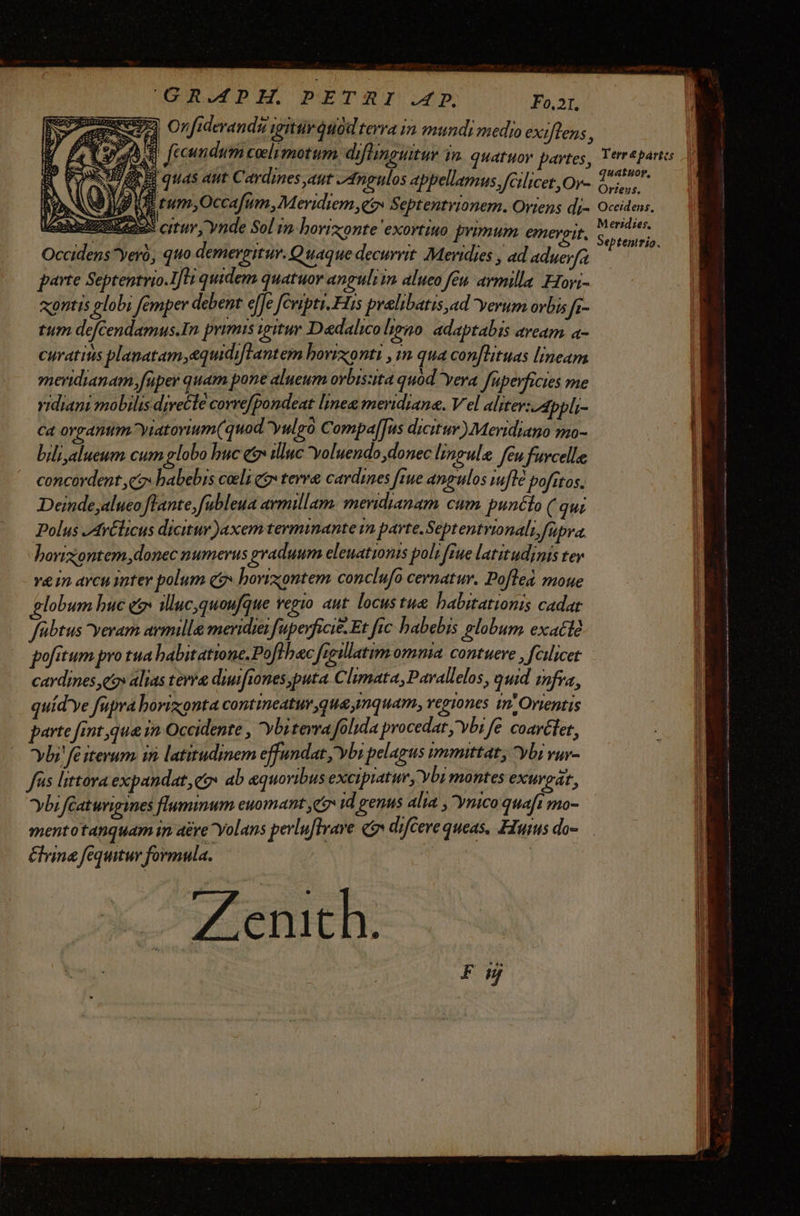 GRAPH. PETRI AP. Fo.21.
Onſiderandũ igitur quòd terra in mundi medio exiſtens,
ſecundum cœli motum diſtinguitur in quatuor partes,
quas aut Cardines, aut Angulos appellamus, ſcilicet, Or-
tum, Occaſum, Meridiem, & Septentrionem. Oriens di-
citur, vnde Sol in horizonte exortiuo primum emergit.
Terræ partes
quatuor.
Oriens.
Occidens.
Meridies.
Septentrio.
Occidens verò, quo demergitur. Quaque decurrit Meridies, ad aduerſa
parte Septentrio. Iſti quidem quatuor anguli in alueo ſeu armilla Hori-
zontis globi ſemper debent eſſe ſcripti. His prælibatis, ad verum orbis ſi-
tum deſcendamus. In primis igitur Dædalico ligno adaptabis aream a-
curatiùs planatam, æquidiſtantem horizonti, in qua conſtituas lineam
meridianam, ſuper quam pone alueum orbis: ita quòd vera ſuperficies me
ridiani mobilis directè correſpondeat lineæ meridianæ. Vel aliter: Appli-
ca organum viatorium (quod vulgò Compaſſus dicitur) Meridiano mo-
bili, alueum cum globo huc & illuc voluendo, donec lingulæ ſeu furcellæ
concordent, & habebis cœli & terræ cardines ſiue angulos iuſtè poſitos.
Deinde, alueo ſtante, ſubleua armillam meridianam cum puncto (qui
Polus Arcticus dicitur) axem terminante in parte Septentrionali, ſupra
horizontem, donec numerus graduum eleuationis poli ſiue latitudinis ter
ræ in arcu inter polum & horizontem concluſo cernatur. Poſteà moue
globum huc & illuc, quouſque regio aut locus tuæ habitationis cadat
ſubtus veram armillæ meridiei ſuperficiē. Et ſic habebis globum exactè
poſitum pro tua habitatione. Poſt hæc ſigillatim omnia contuere, ſcilicet
cardines, & alias terræ diuiſiones, puta Climata, Parallelos, quid infra,
quíd ve ſuprà horizonta contineatur, quæ, inquam, regiones in Orientis
parte ſint, quæ in Occidente, vbi terra ſolida procedat, vbi ſe coarctet,
vbi ſe iterum in latitudinem effundat, vbi pelagus immittat, vbi rur-
ſus littora expandat, & ab æquoribus excipiatur, vbi montes exurgāt,
vbi ſcaturigines fluminum euomant, & id genus alia, vnico quaſi mo-
mento tanquam in aëre volans perluſtrare & diſcere queas. Huius do-
ctrinæ ſequitur formula.
Zenith.
F iij